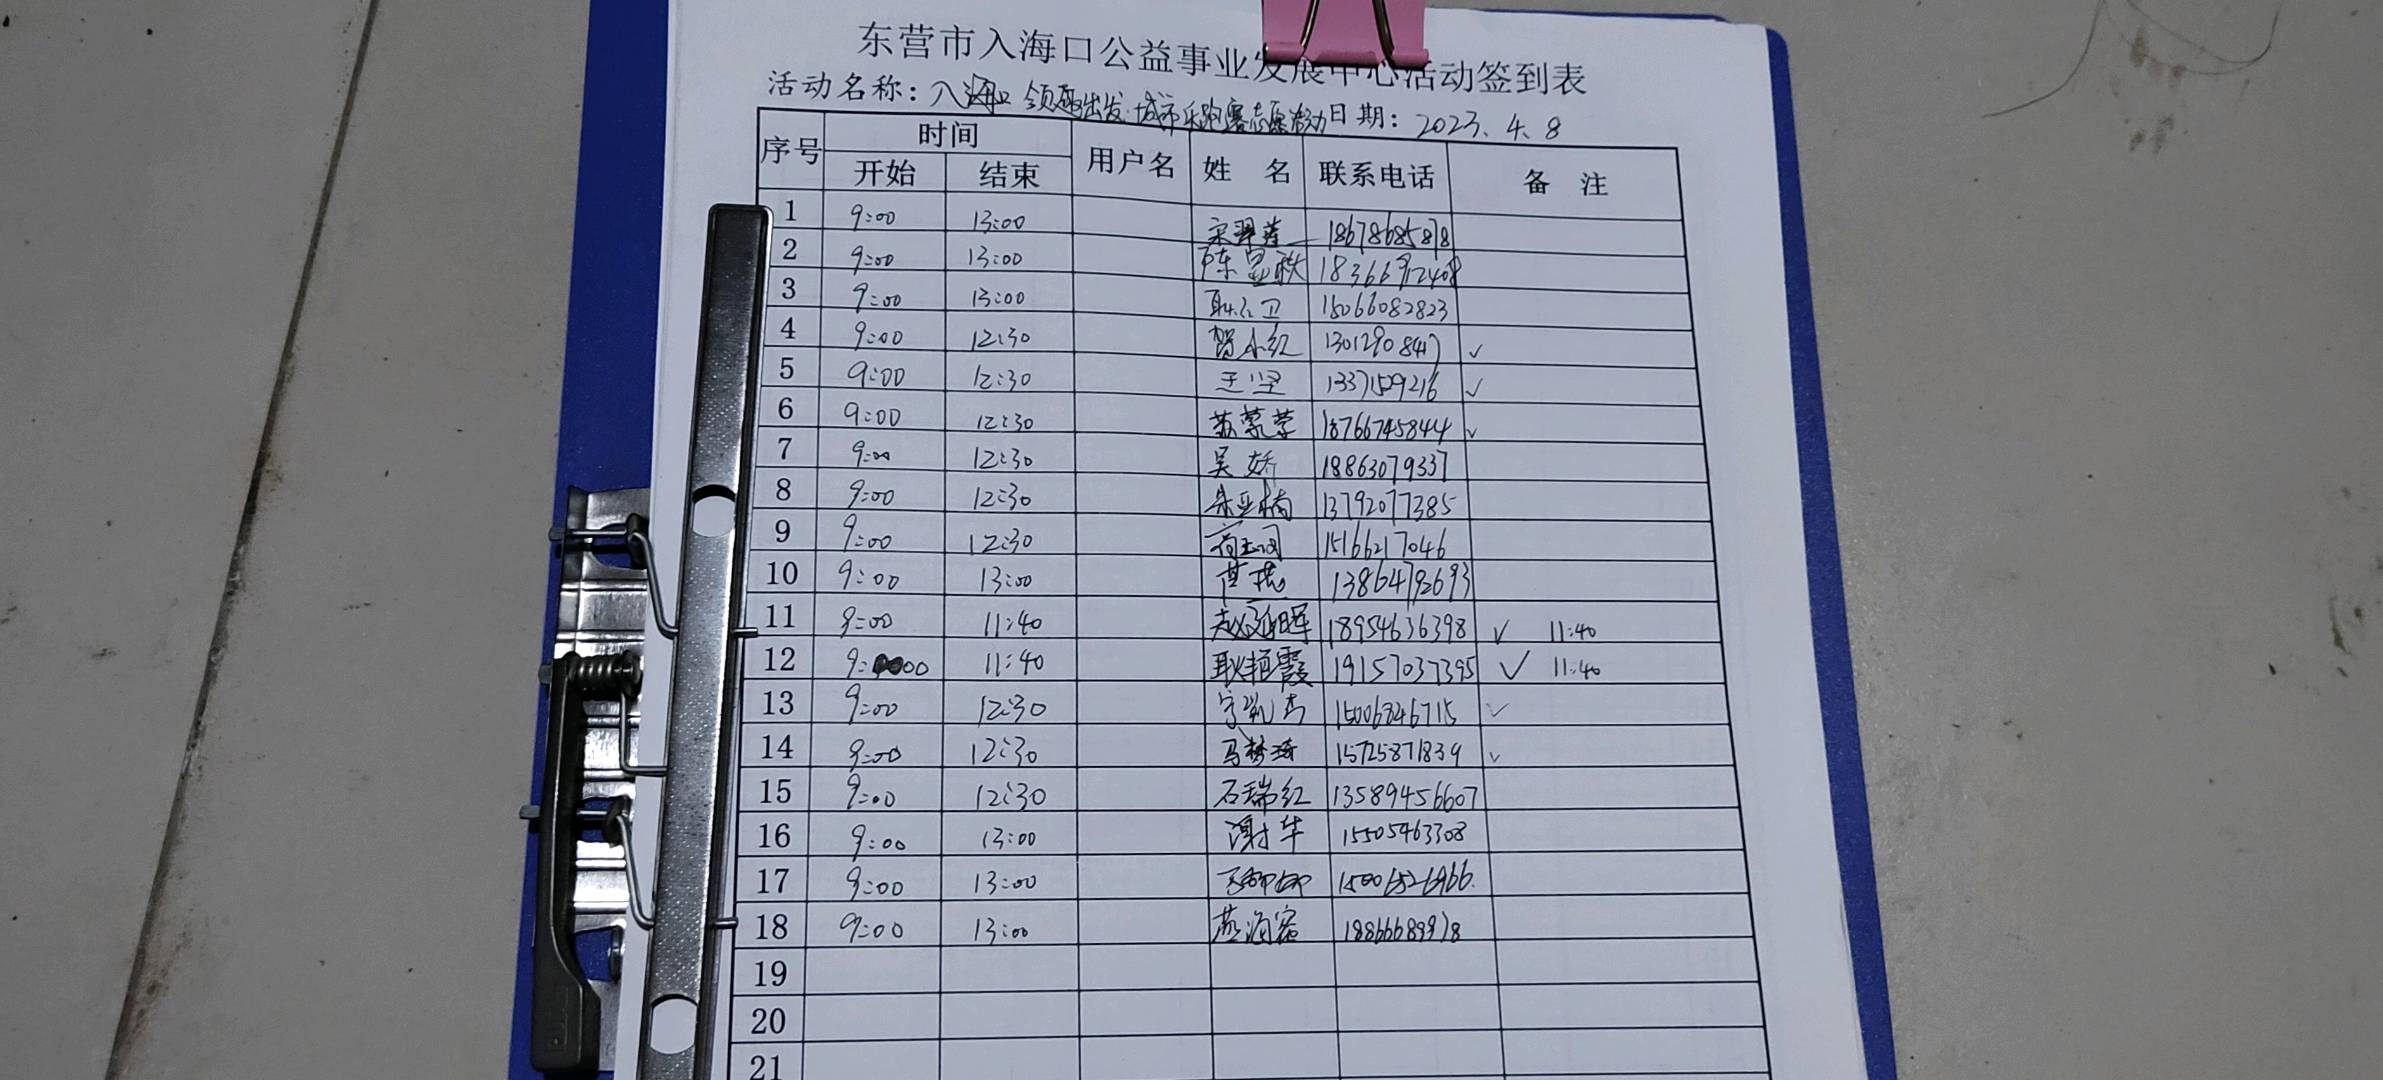 东营市入海口公益事业发展中心活动签到表
活动名称：入海口 领跑出发·城市乐跑赛志愿活动 日期：2023.4.8
序号 时间 用户名 姓 名 联系电话 备 注
开始 结束
1 9:00 13:00 18678685878
2 9:00 13:00 陈 18366912408
3 9:00 13:00 耿 卫 15066082823
4 9:00 12:30 贺小红 13012908417 ✓
5 9:00 12:30 王坚 13371509216 ✓
6 9:00 12:30 苏蒙蒙 18766745844 ✓
7 9:00 12:30 吴娇 18863079337
8 9:00 12:30 朱亚楠 13792077385
9 9:00 12:30 15166217046
10 9:00 13:00 13864792693
11 9:00 11:40 赵延晖 18954636398 ✓ 11:40
12 9:00 11:40 耿艳霞 19157037395 ✓ 11:40
13 9:00 12:30 15006846715 ✓
14 9:00 12:30 马梦琦 15725871839 ✓
15 9:00 12:30 石瑞红 13589456607
16 9:00 13:00 谢华 15505463308
17 9:00 13:00
18 9:00 13:00 18866689978
19
20
21